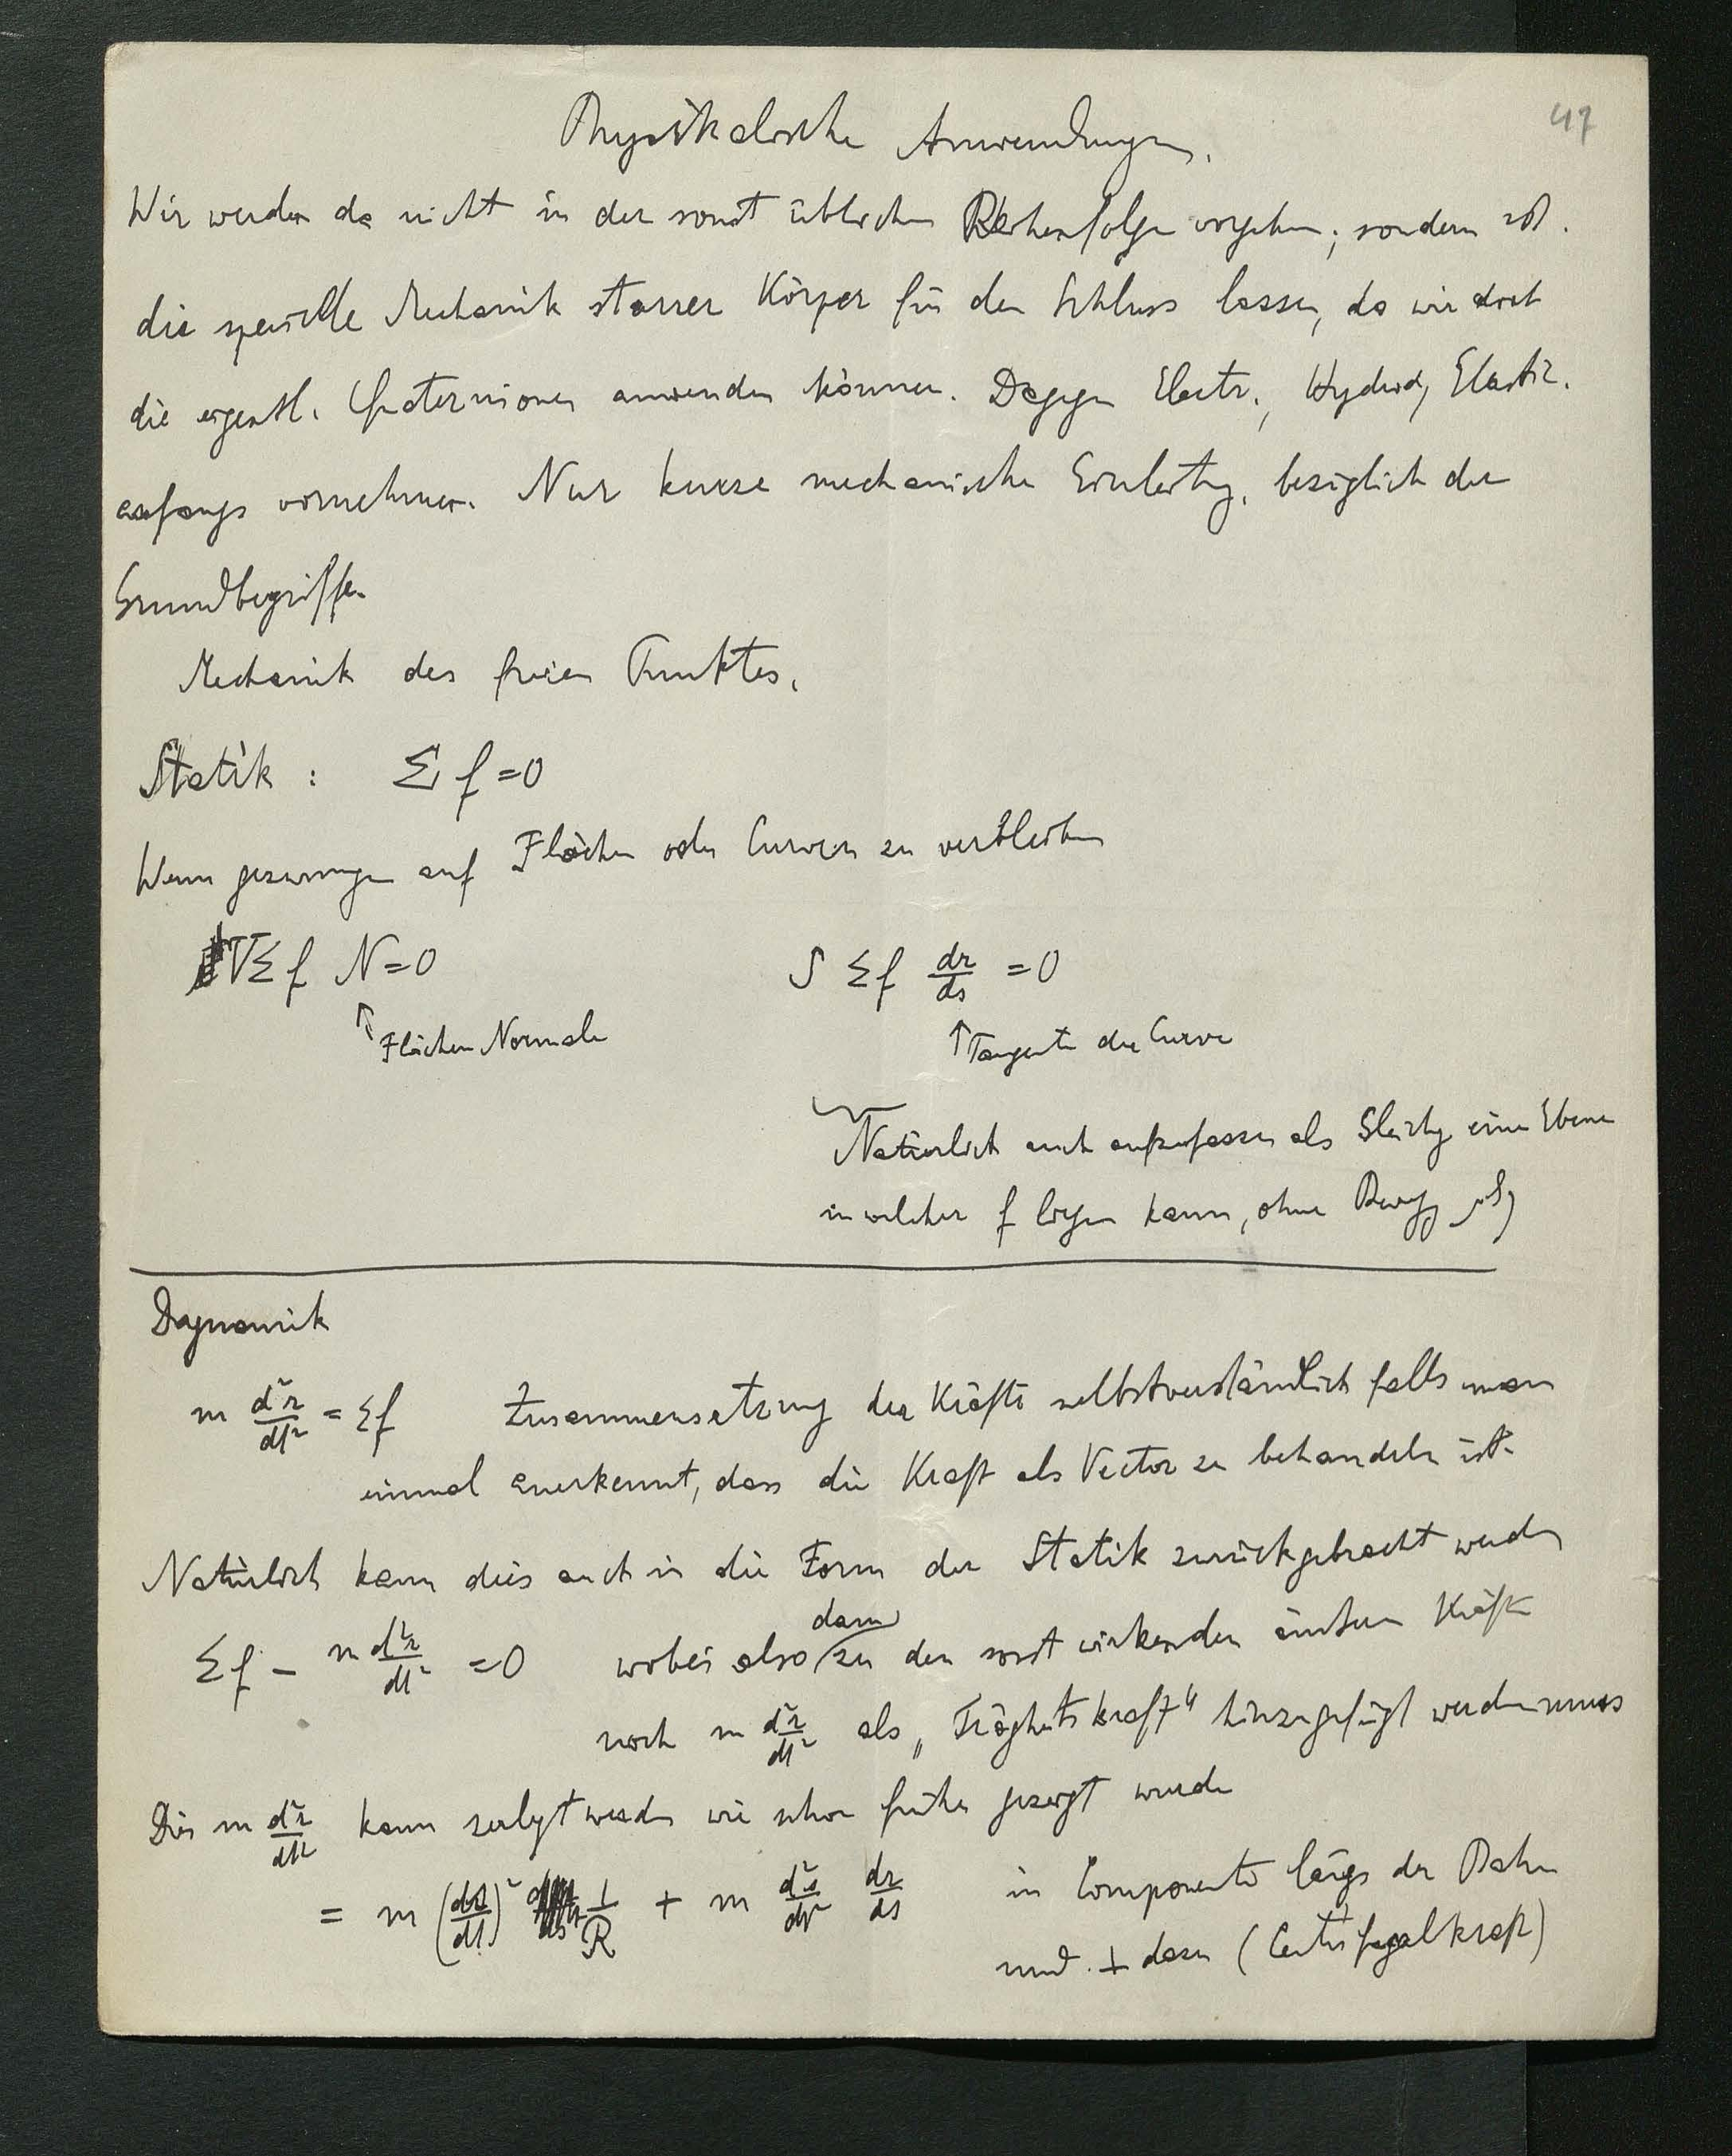 47
Physikalische Anwendungen.
Wir werden da nicht in der sonst üblichen Reihenfolge vorgehen; sondern
die spezielle Mechanik starrer Körper für den Schluss lassen, da wir dort
die eigentl. Quaternionen anwenden können. Dagegen Electr., Hydrod, Elastiz.
anfangs vornehmen. Nur kurze mechanische Einleitg. bezüglich der
Grundbegriffe.
Mechanik des freien Punktes.
Statik : Σ f = 0
Wenn gezwungen auf Flächen oder Curven zu verbleiben
VΣ f N = 0 S Σ f dr/ds = 0
↑ Flächen Normale ↑ Tangente der Curve
Natürlich auch aufzufassen als Gleichg einer Ebene
in welcher f liegen kann, ohne Bewegg
Dynamik
m d²r/dt² = Σf Zusammensetzung der Kräfte selbstverständlich falls man
einmal anerkennt, dass die Kraft als Vector zu behandeln ist.
Natürlich kann dies auch in die Form der Statik zurückgebracht werden
Σf - m d²r/dt² = 0 wobei also dann zu den sonst wirkenden äussern Kräften
noch m d²r/dt² als „Trägheitskraft“ hinzugefügt werden muss
Dies m d²r/dt² kann zerlegt werden wie schon früher gezeigt wurde
= m (ds/dt)² 1/R + m d²s/dt² dr/ds in Componente längs der Bahn
und ⊥ dazu (Centrifugalkraft)